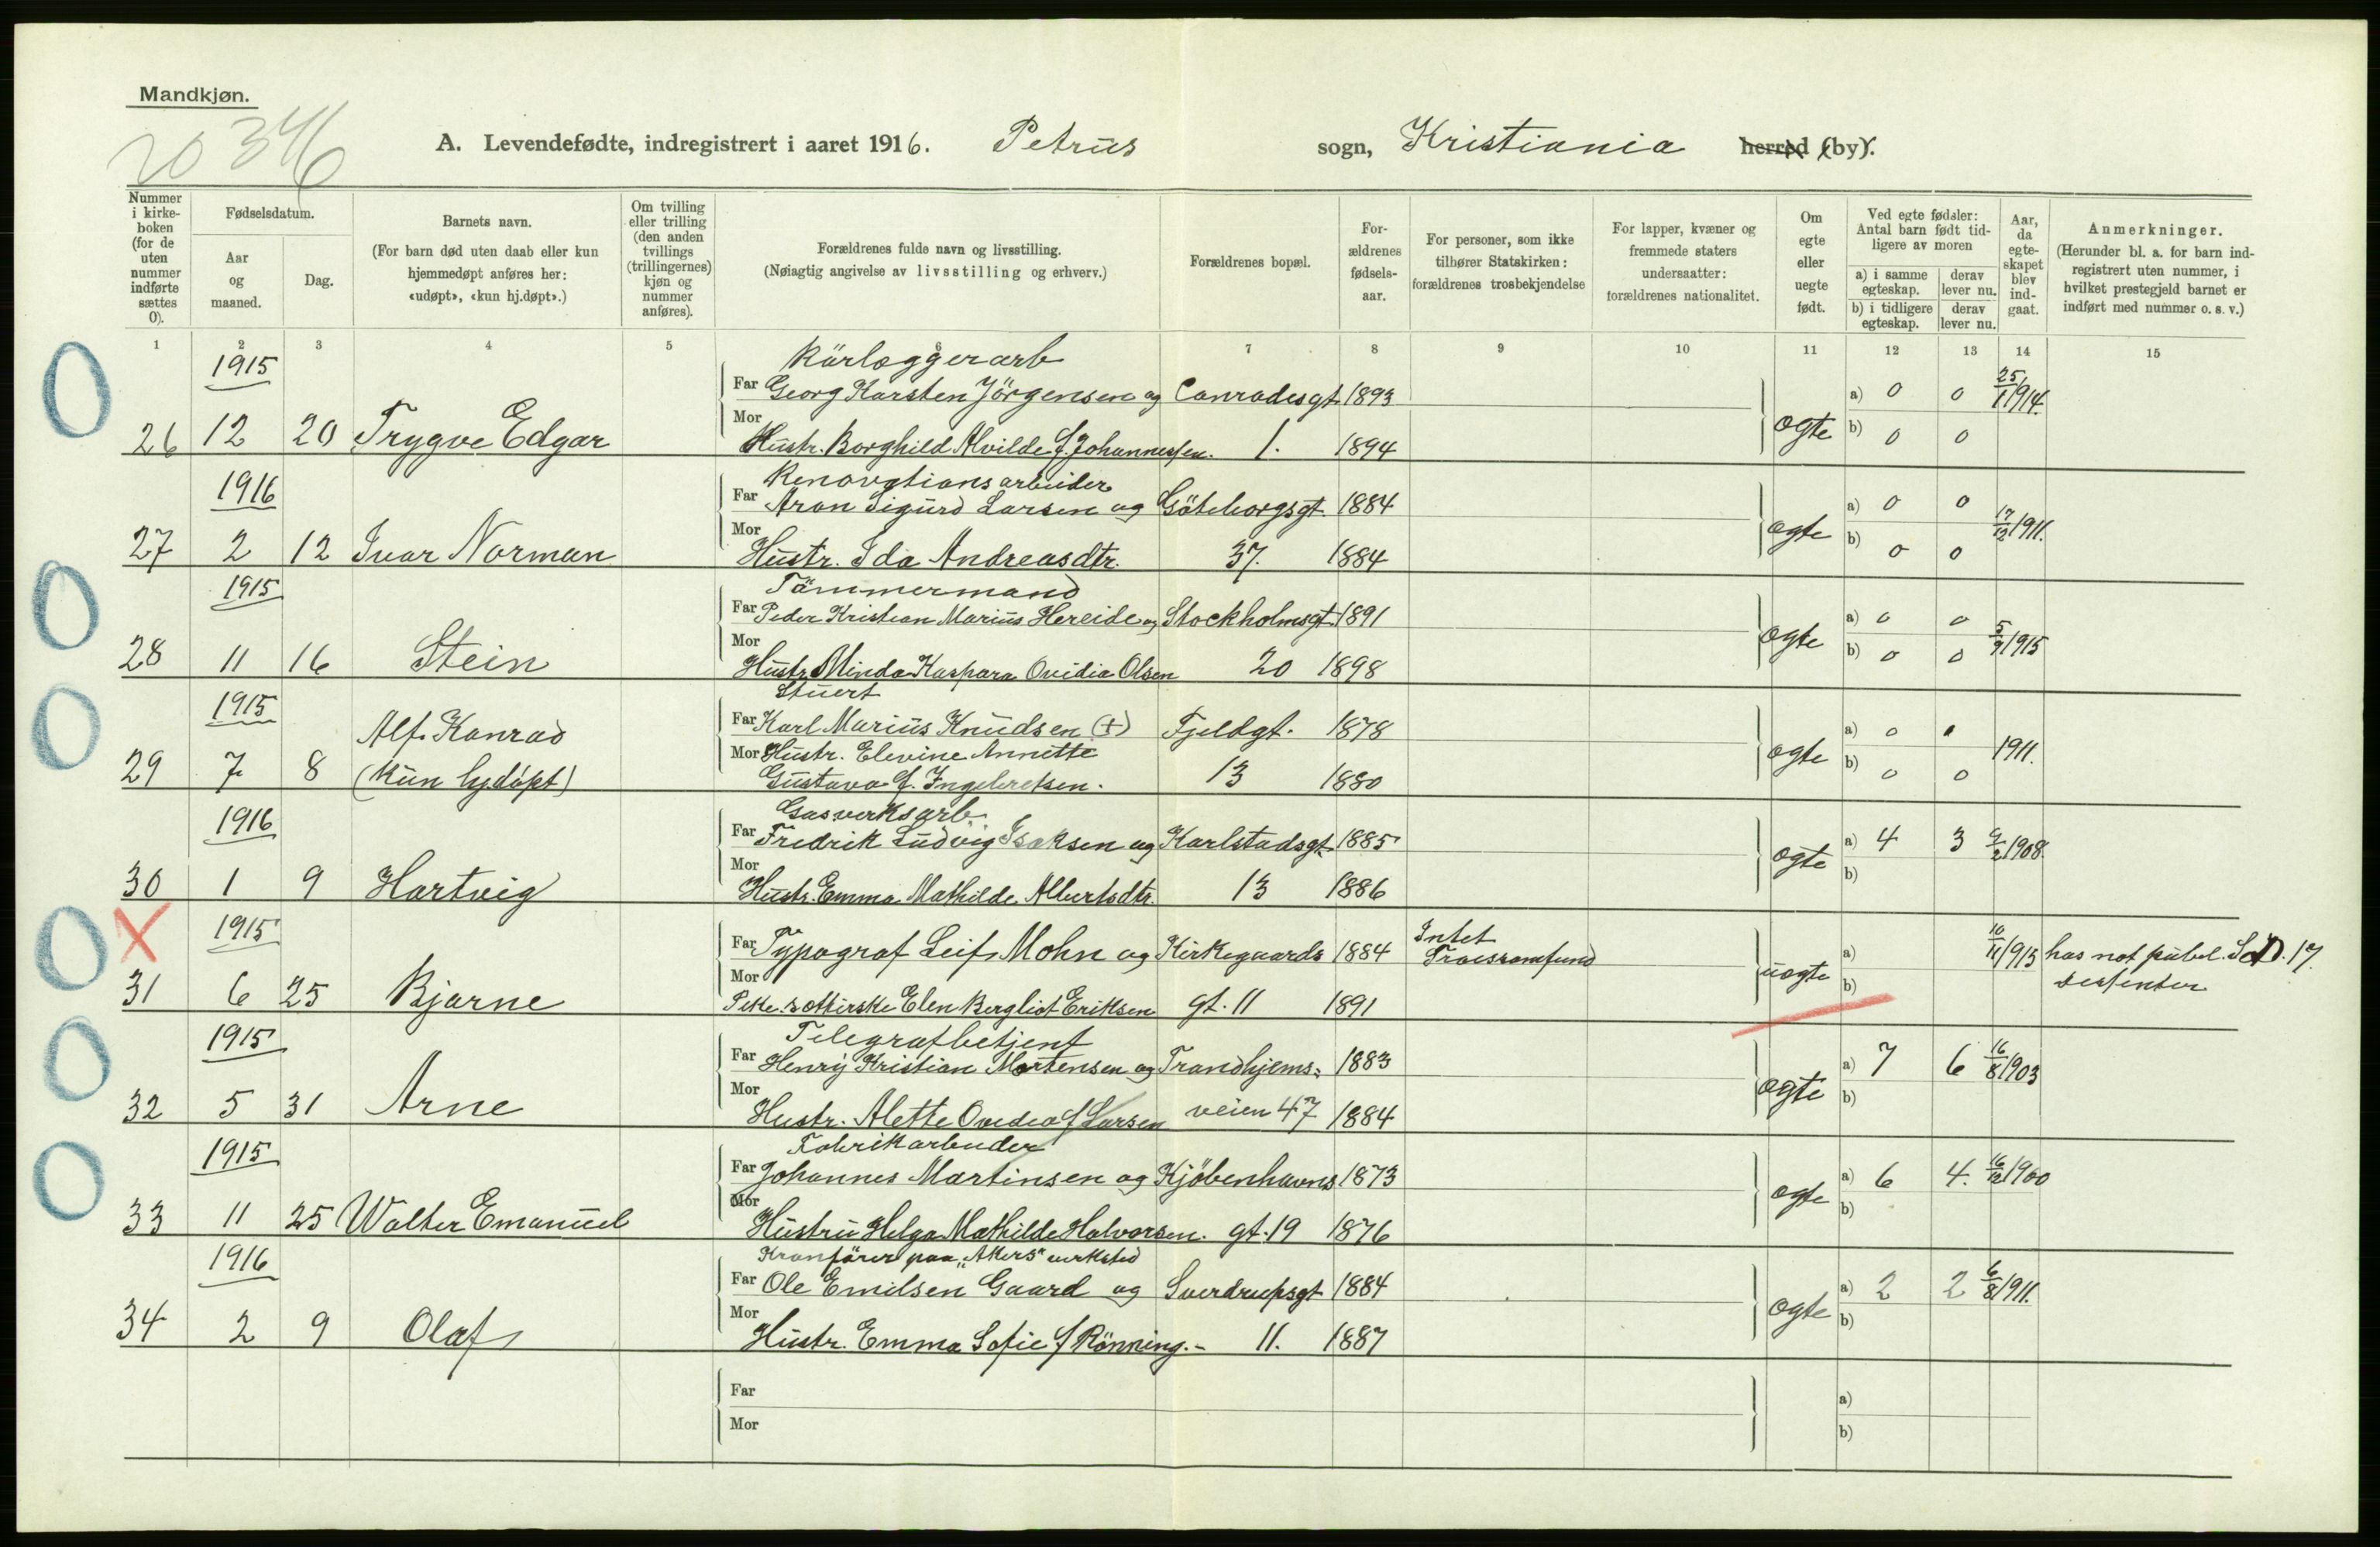 Mandkjøn.
20 346
A. Levendefødte, indregistrert i aaret 1916. Petrus sogn, Kristiania herred (by).
Nummer i kirke-boken (for de uten nummer indførte sættes 0).
Fødselsdatum.
Aar og maaned.
Dag.
Barnets navn.
(For barn død uten daab eller kun hjemmedøpt anføres her: «udøpt», «kun hj.døpt».)
Om tvilling eller trilling (den anden tvillings (trillingernes) kjøn og nummer anføres).
Forældrenes fulde navn og livsstilling.
(Nøiagtig angivelse av livsstilling og erhverv.)
Forældrenes bopæl.
For-ældrenes fødsels-aar.
For personer, som ikke tilhører Statskirken: forældrenes trosbekjendelse
For lapper, kvæner og fremmede staters undersaatter: forældrenes nationalitet.
Om egte eller uegte født.
Ved egte fødsler: Antal barn født tid-ligere av moren
a) i samme egteskap.
derav lever nu.
b) i tidligere egteskap.
derav lever nu.
Aar, da egte-skapet blev ind-gaat.
Anmerkninger.
(Herunder bl. a. for barn ind-registrert uten nummer, i hvilket prestegjeld barnet er indført med nummer o. s. v.)
1 2 3 4 5 6 7 8 9 10 11 12 13 14 15
1915 Rörlæggerarb
Far Georg Karsten Jörgensen og Conradesgt. 1893 a) 0 0 25/1 1914.
26 12 20 Trygve Edgar Mor Hustr. Borghild Alvilde f. Johannessen. 1. 1894 ægte b) 0 0
1916 Renovationsarbeider
Far Aron Sigurd Larsen og Göteborgsgt. 1884 a) 0 0 17/12 1911.
27 2 12 Ivar Norman Mor Hustr. Ida Andreasdtr. 37. 1884 ægte b) 0 0
1915 Tömmermand
Far Peder Kristian Marius Hereide og Stockholmsgt. 1891 a) 0 0 5/9 1915
28 11 16 Stein Mor Hustr. Minda Kaspara Ovidia Olsen 20 1898 ægte b) 0 0
1915 Stuert
Alf Konrad Far Karl Marius Knudsen (+) Fjeldgt. 1878 a) 0 1911.
29 7 8 (kun hj.döpt) Mor Hustr. Elevine Annette
Gustava f. Ingebretsen. 13 1880 ægte b) 0 0
1916 Gasverksarb.
Far Fredrik Ludvig Isaksen og Karlstadsgt. 1885 a) 4 3 9/2 1908.
30 1 9 Hartvig Mor Hustr. Emma Mathilde Albertsdtr. 13 1886 ægte b)
X 1915 Far Typograf Leif Mohn og Kirkegaards 1884 Intet Troessamfund a) 1915 has not publ. 17.
31 6 25 Bjarne Mor Elen Bergliot Eriksen gt. 11 1891 uægte b) dessenter
1915 Telegrafbetjent
Far Henry Kristian Mortensen og Trondhjems= 1883 a) 7 6 16/8 1903
32 5 31 Arne Mor Hustr. Alette Ovedia f Larsen veien 47 1884 ægte b)
1915 Fabrikarbeider
Far Johannes Martinsen og Kjöbenhavns 1873 a) 6 4. 16/12 1900
33 11 25 Walter Emanuel Mor Hustru Helga Mathilde Halvorsen. gt. 19 1876 ægte b)
1916 Kranförer paa "Akers" verksted
Far Ole Emilsen Gaard og Sverdrupsgt 1884 a) 2 2 6/8 1911.
34 2 9 Olaf Mor Hustr. Emma Sofie f Rönning.- 11. 1887 ægte b)
Far a)
Mor b)